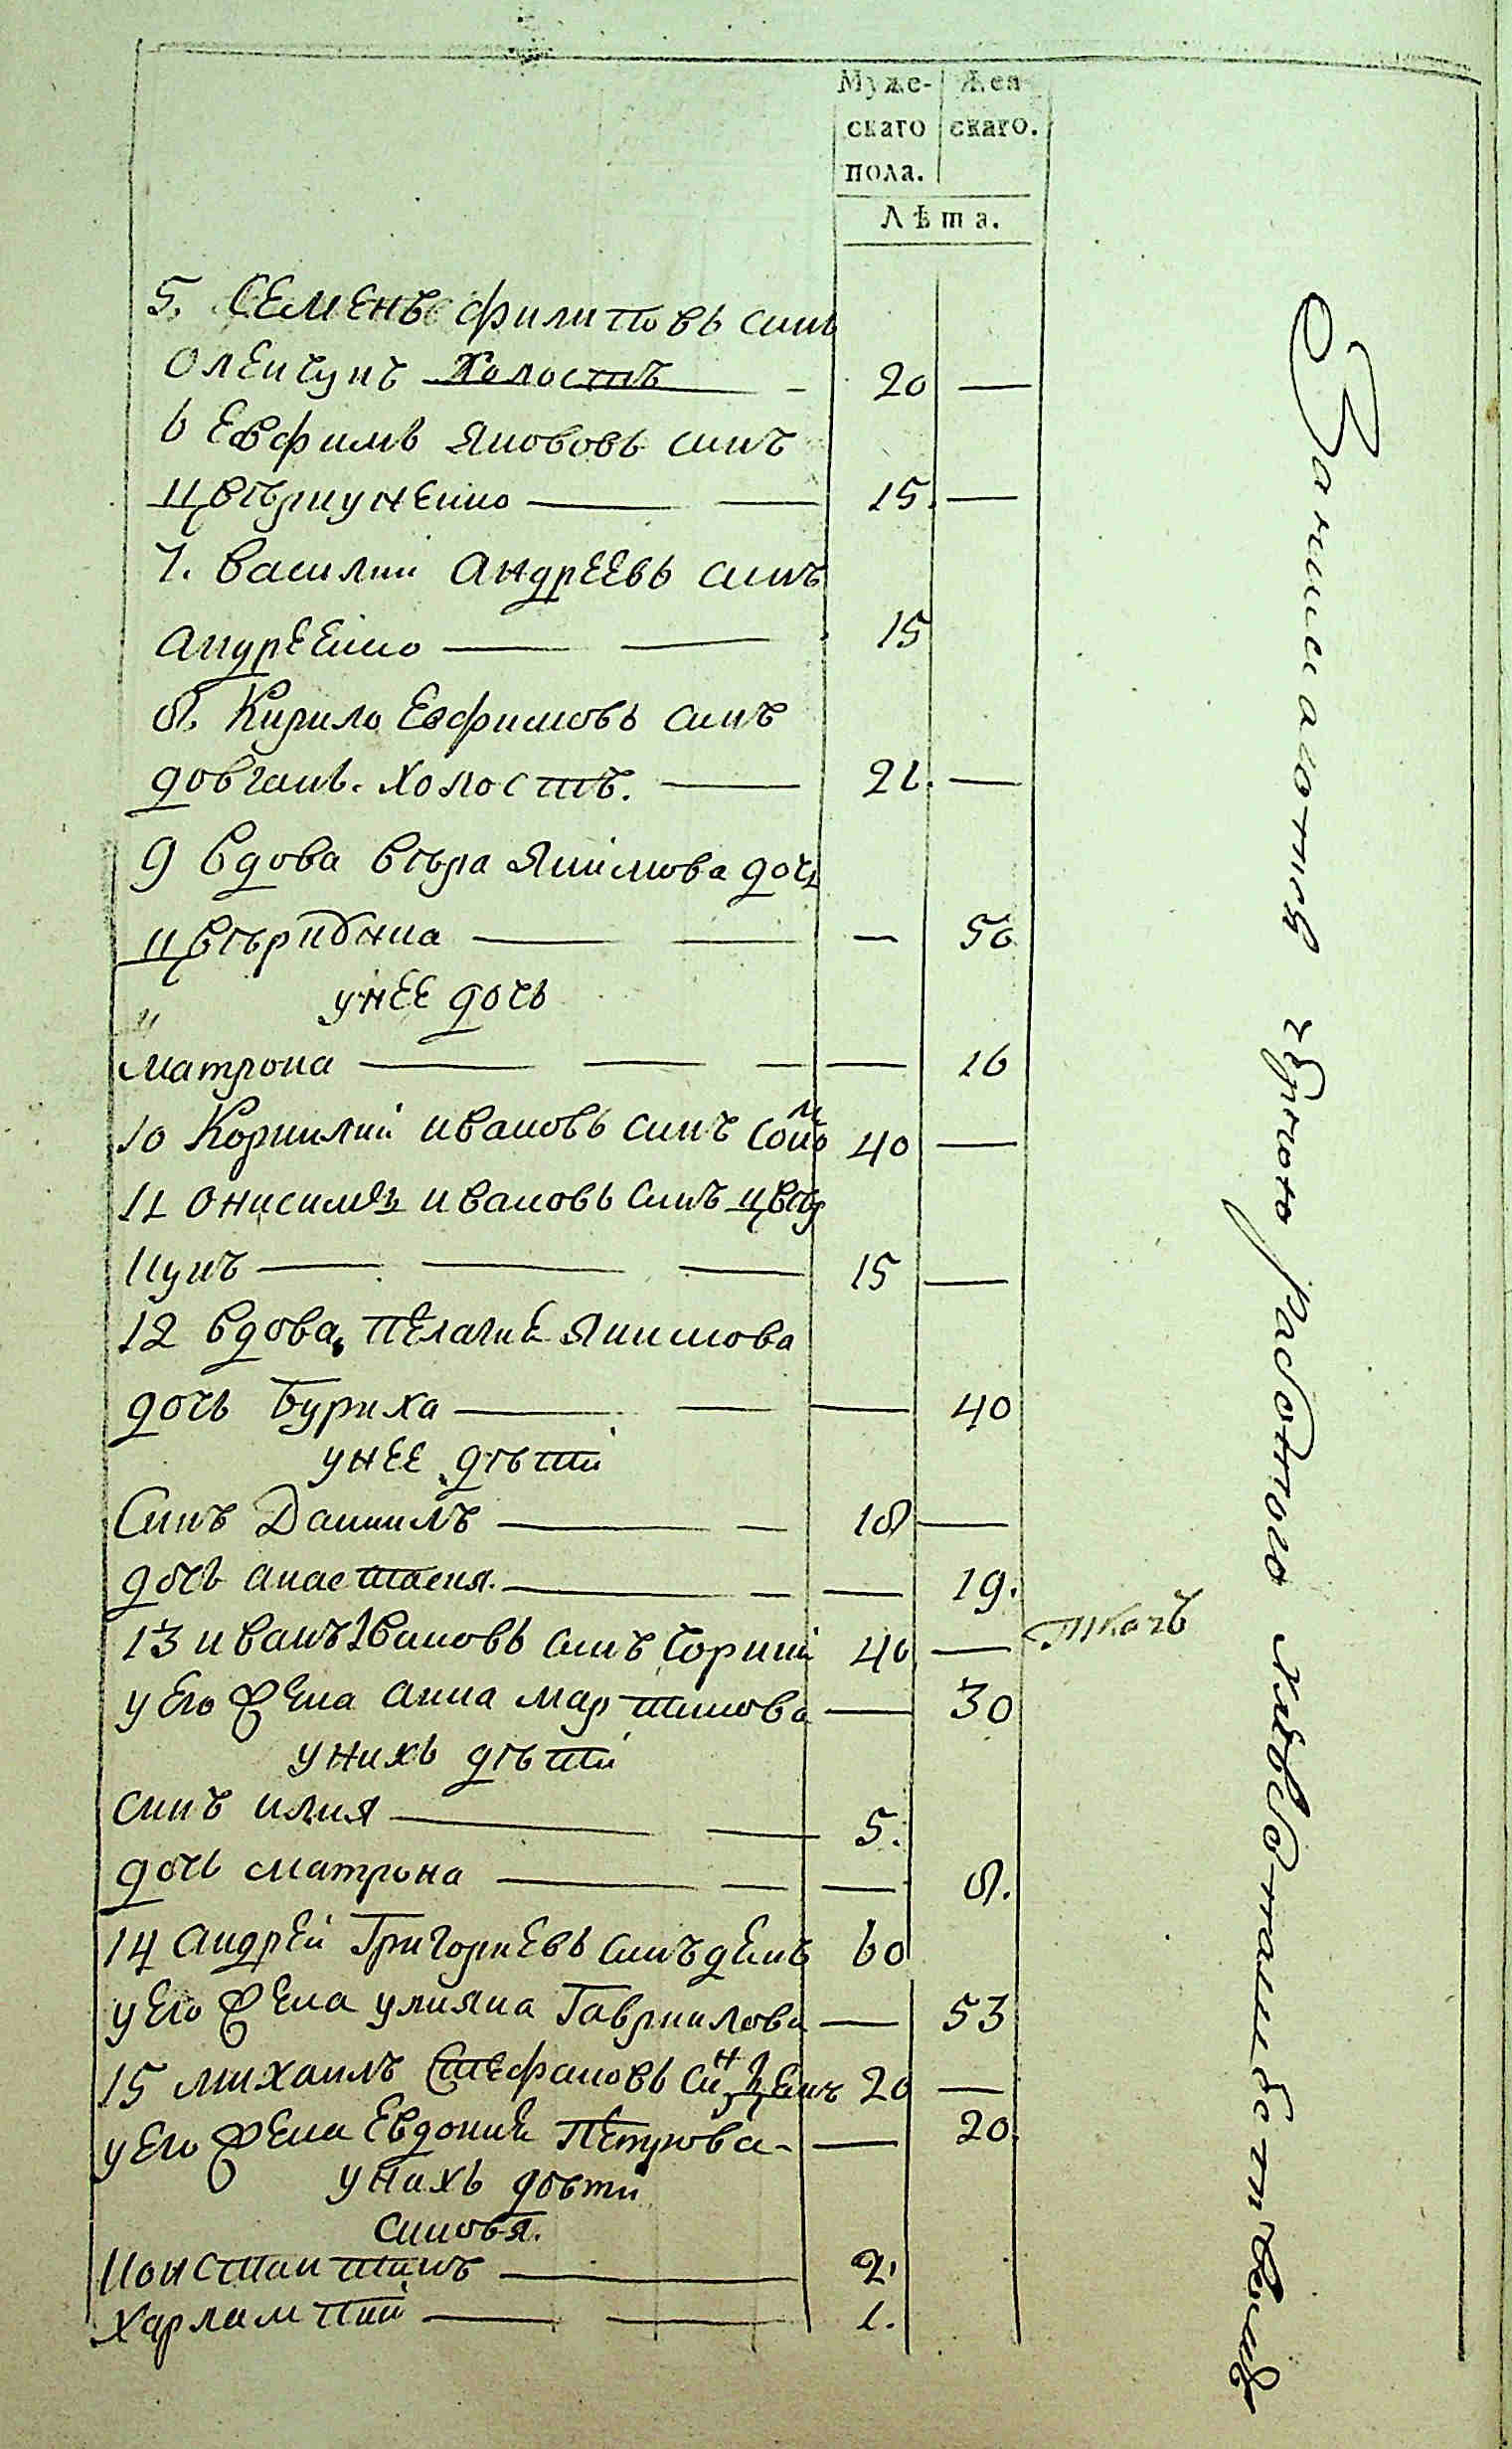 Муже- Жен
скаго скаго.
пола.
Лѣта.
5. Семенъ филиповъ синъ
Олейчукъ Холостъ 20 —
6 Евфимъ Якововъ синъ
Цвѣркуненко — — 15. —
7. Василий Андреевъ синъ
Андреенко — — 15
8. Кирило Евфимовъ синъ
довгань. холостъ. — 21. —
9 Вдова Вѣра Якимова дочь
— — — 50
у нее дочь
матрона — — — — 16
10 Корнилий ивановъ синъ 40 —
11 Онисимъ ивановъ синъ цвѣр
кунъ — — — 15 —
12 Вдова Пелагие Якимова
дочь Буриха — — — 40
у нее дѣти
Синъ Даниилъ — — 18 —
дочь анастасия. — — — 19.
13 иванъ Ивановъ синъ Чорний 40 — Ткачъ
у его жена анна мартинова — 30
у нихъ дѣти
синъ илия — — 5.
дочь матрона — — — 8.
14 андрей Григориевъ синъ 60
у его жена улияна Гавриилова — 53
15 михаилъ Стефановъ син 20 —
у его жена Евдокие Петрова — — 20.
у нихъ дѣти
синовья.
Константинъ — 2.
Харлампий — — 1.
Занимаются чорною работою хлѣбопашественною